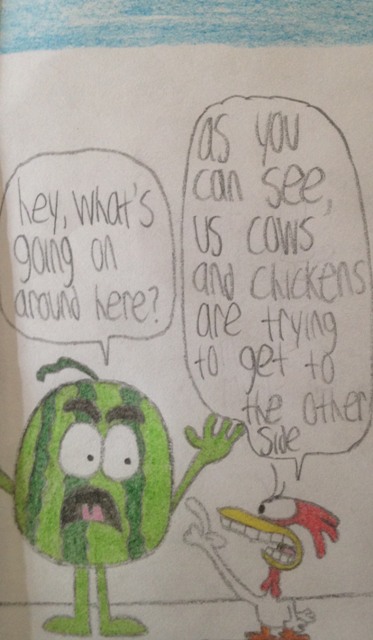 hey, what's
going on
around here?
as you
can see,
us cows
and chickens
are trying
to get to
the other
side